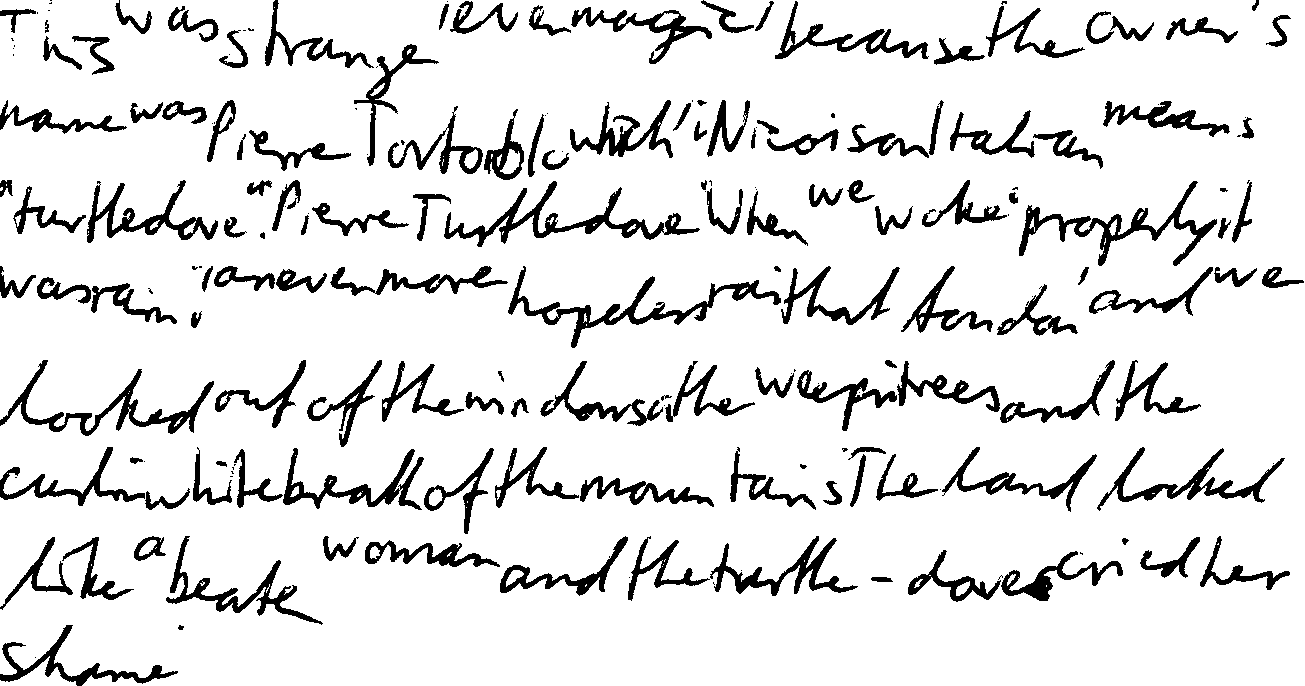 This was strange, even magic, because the owner's
name was Pierre Tortorolo which in Nicois or Italian means
"turtledove". Pierre Turtledove. When we woke properly it
was rain, an even more hopeless rain that London, and we
looked out of the windows at the weepin trees and the
curlin white breath of the mountains The land looked
like a beate woman and the turtle-doves cried her
shame